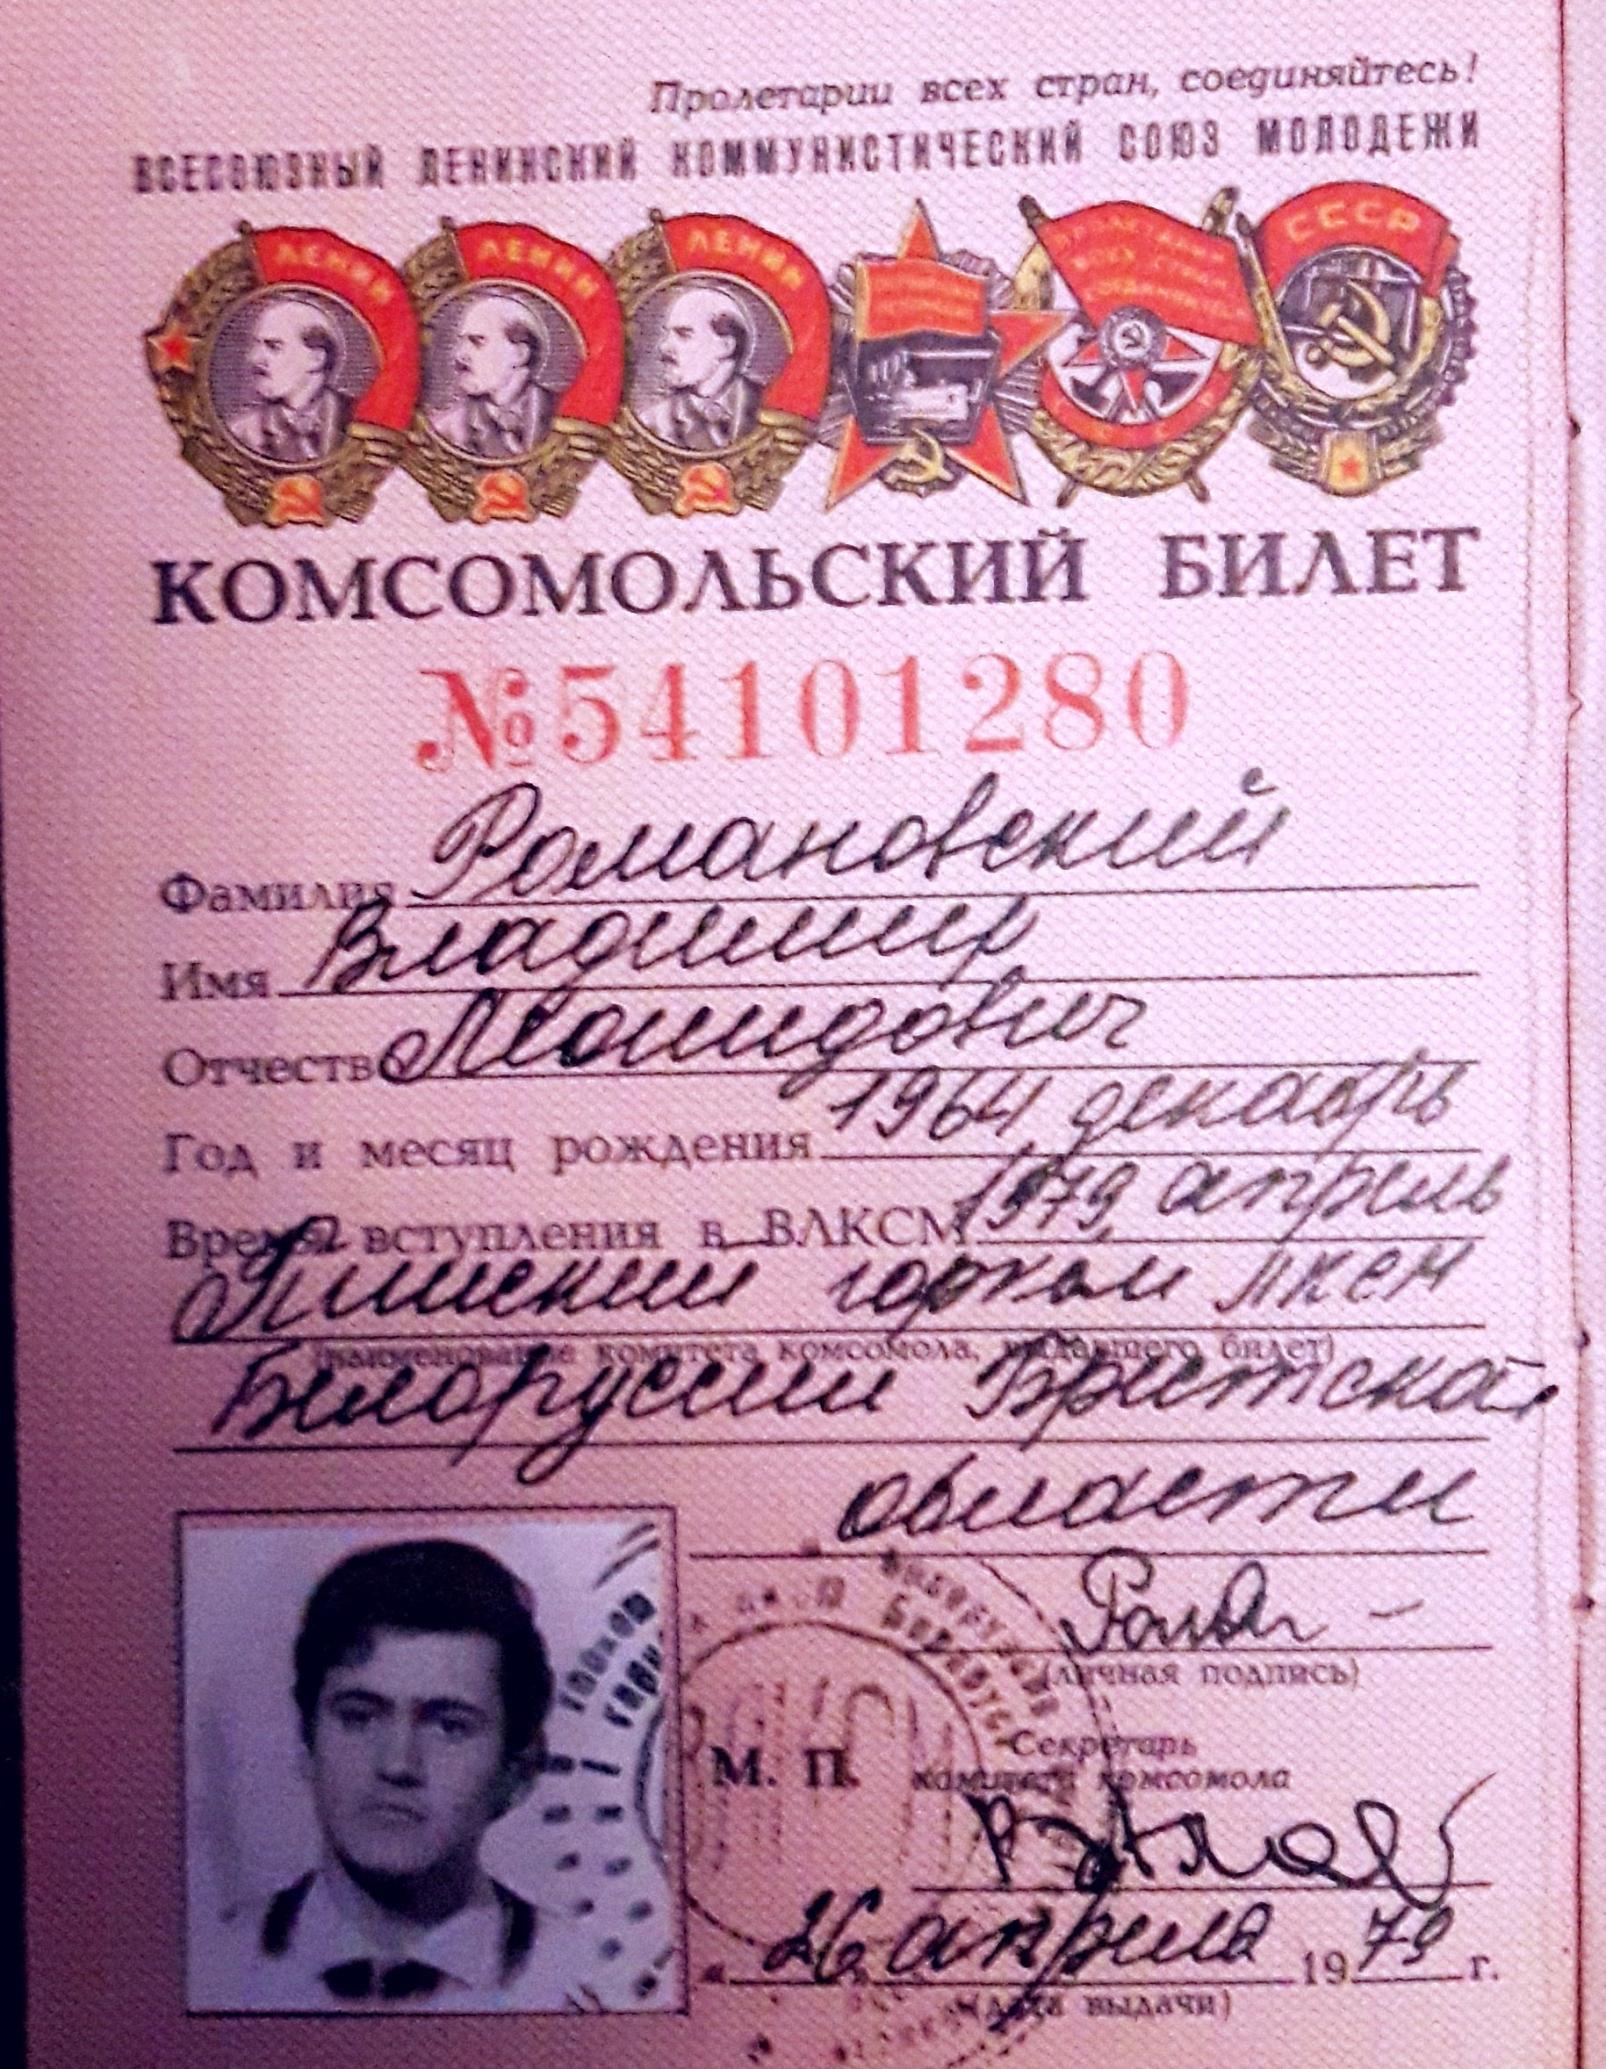 Пролетарии всех стран, соединяйтесь!
ВСЕСОЮЗНЫЙ ЛЕНИНСКИЙ КОММУНИСТИЧЕСКИЙ СОЮЗ МОЛОДЕЖИ
ЛЕНИН ЛЕНИН ЛЕНИН СССР
КОМСОМОЛЬСКИЙ БИЛЕТ
№54101280
Фамилия Романовский
Имя Владимир
Отчество Леонидович
Год и месяц рождения 1964, декабрь
Время вступления в ВЛКСМ 1979, апрель
Пинский горком ЛКСМ
(наименование комитета комсомола, выдавшего билет)
Белоруссии Брестской
области
(личная подпись)
М. П.
Секретарь
комитета комсомола
26 апреля 1979 г.
(дата выдачи)